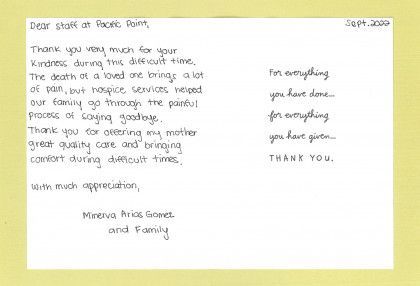 Dear Staff at Pacific Point,
Sept. 2022
Thank you very much for your
kindness during this difficult time.
The death of a loved one brings a lot
of pain, but hospice services helped
our family go through the painful
process of saying goodbye.
Thank you for offering my mother
great quality care and bringing
comfort during difficult times.
With much appreciation,
Minerva Arias Gomez
and Family
For everything
you have done...
for everything
you have given...
THANK YOU.